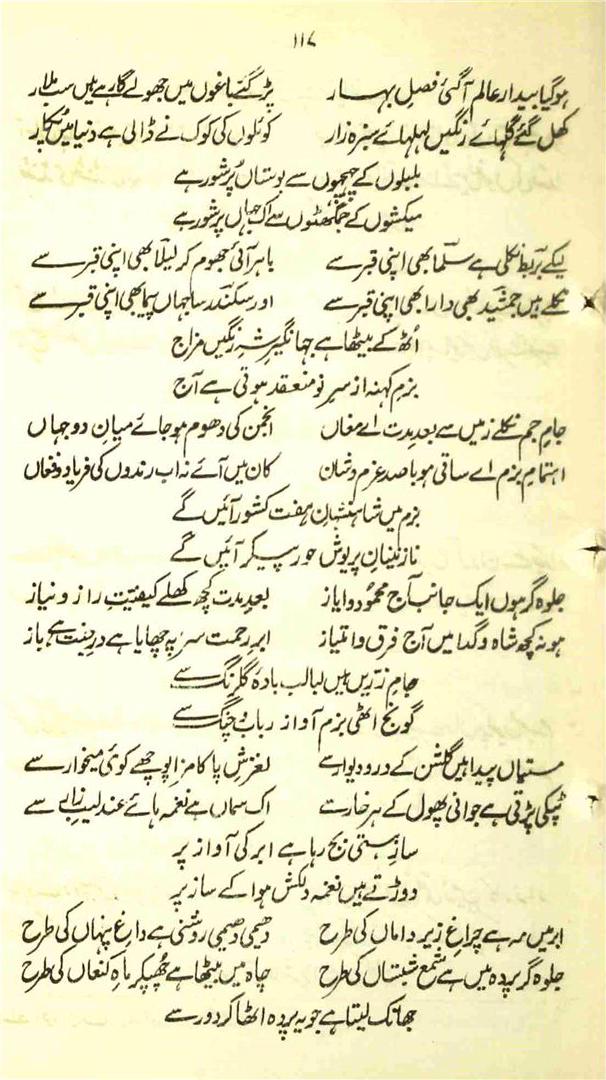 ۱۱۷
ہوگیا بیدار عالم آگئی فصلِ بہار پڑگئے باغوں میں جھولے گارہے ہیں سب ملار
کھل گئے گلہائے رنگیں لہلہائے سبزہ زار کوئلوں کی کوک نے ڈالی ہے دنیا میں پکار
بلبلوں کے چہچہوں سے بوستاں پُرشور ہے
میکشوں کے جمگھٹوں سے اک جہاں پرشور ہے
لیکے بربط نکلی ہے سلمٰا بھی اپنی قبر سے باہر آئی جھوم کر لیلٰا بھی اپنی قبر سے
نکلے ہیں جمشید بھی دارا بھی اپنی قبر سے اور سکندر سا جہاں پیما بھی اپنی قبر سے
اُٹھ کے بیٹھا ہے جہانگیر شہِ رنگیں مزاج
بزمِ کہنہ از سرِ نو منعقد ہوتی ہے آج
جامِ جم نکلے زمیں سے بعد مدت اے مغاں انجمن کی دھوم ہوجائے میانِ دو جہاں
اہتمامِ بزم اے ساقی ہو باصد عزم و شان کان میں آئے نہ اب رندوں کی فریاد و فغاں
بزم میں شاہنشہانِ ہفت کشور آئیں گے
نازنینانِ پریوش حور پیکر آئیں گے
جلوہ گر ہوں ایک جانب آج محمود و ایاز بعد مدت کچھ کھلے کیفیتِ راز و نیاز
ہو نہ کچھ شاہ و گدا میں آج فرق و امتیاز ابرِ رحمت سر پہ چھایا ہے درِ جنت ہے باز
جامِ زرّیں ہیں لبالب بادۂ گلرنگ سے
گونج اٹھی بزم آواز رباب و چنگ سے
مستیاں پیدا ہیں گلشن کے در و دیوار سے لغزشِ پا کا مزا پوچھے کوئی میخوار سے
ٹپکی پڑتی ہے جوانی پھول کے ہر خار سے اک سماں ہے نغمہ ہائے عندلیبِ سے
سازِ ہستی بج رہا ہے ابر کی آواز پر
دوڑتے ہیں نغمہ دلکش ہوا کے ساز پر
ابر میں مہ ہے چراغِ زیرِ داماں کی طرح دھیمی دھیمی روشنی ہے داغِ پنہاں کی طرح
جلوہ گر پردہ میں ہے شمعِ شبستاں کی طرح چاہ میں بیٹھا ہے چھپکر ماہِ کنعاں کی طرح
جھانک لیتا ہے جو یہ پردہ اٹھا کر دور سے